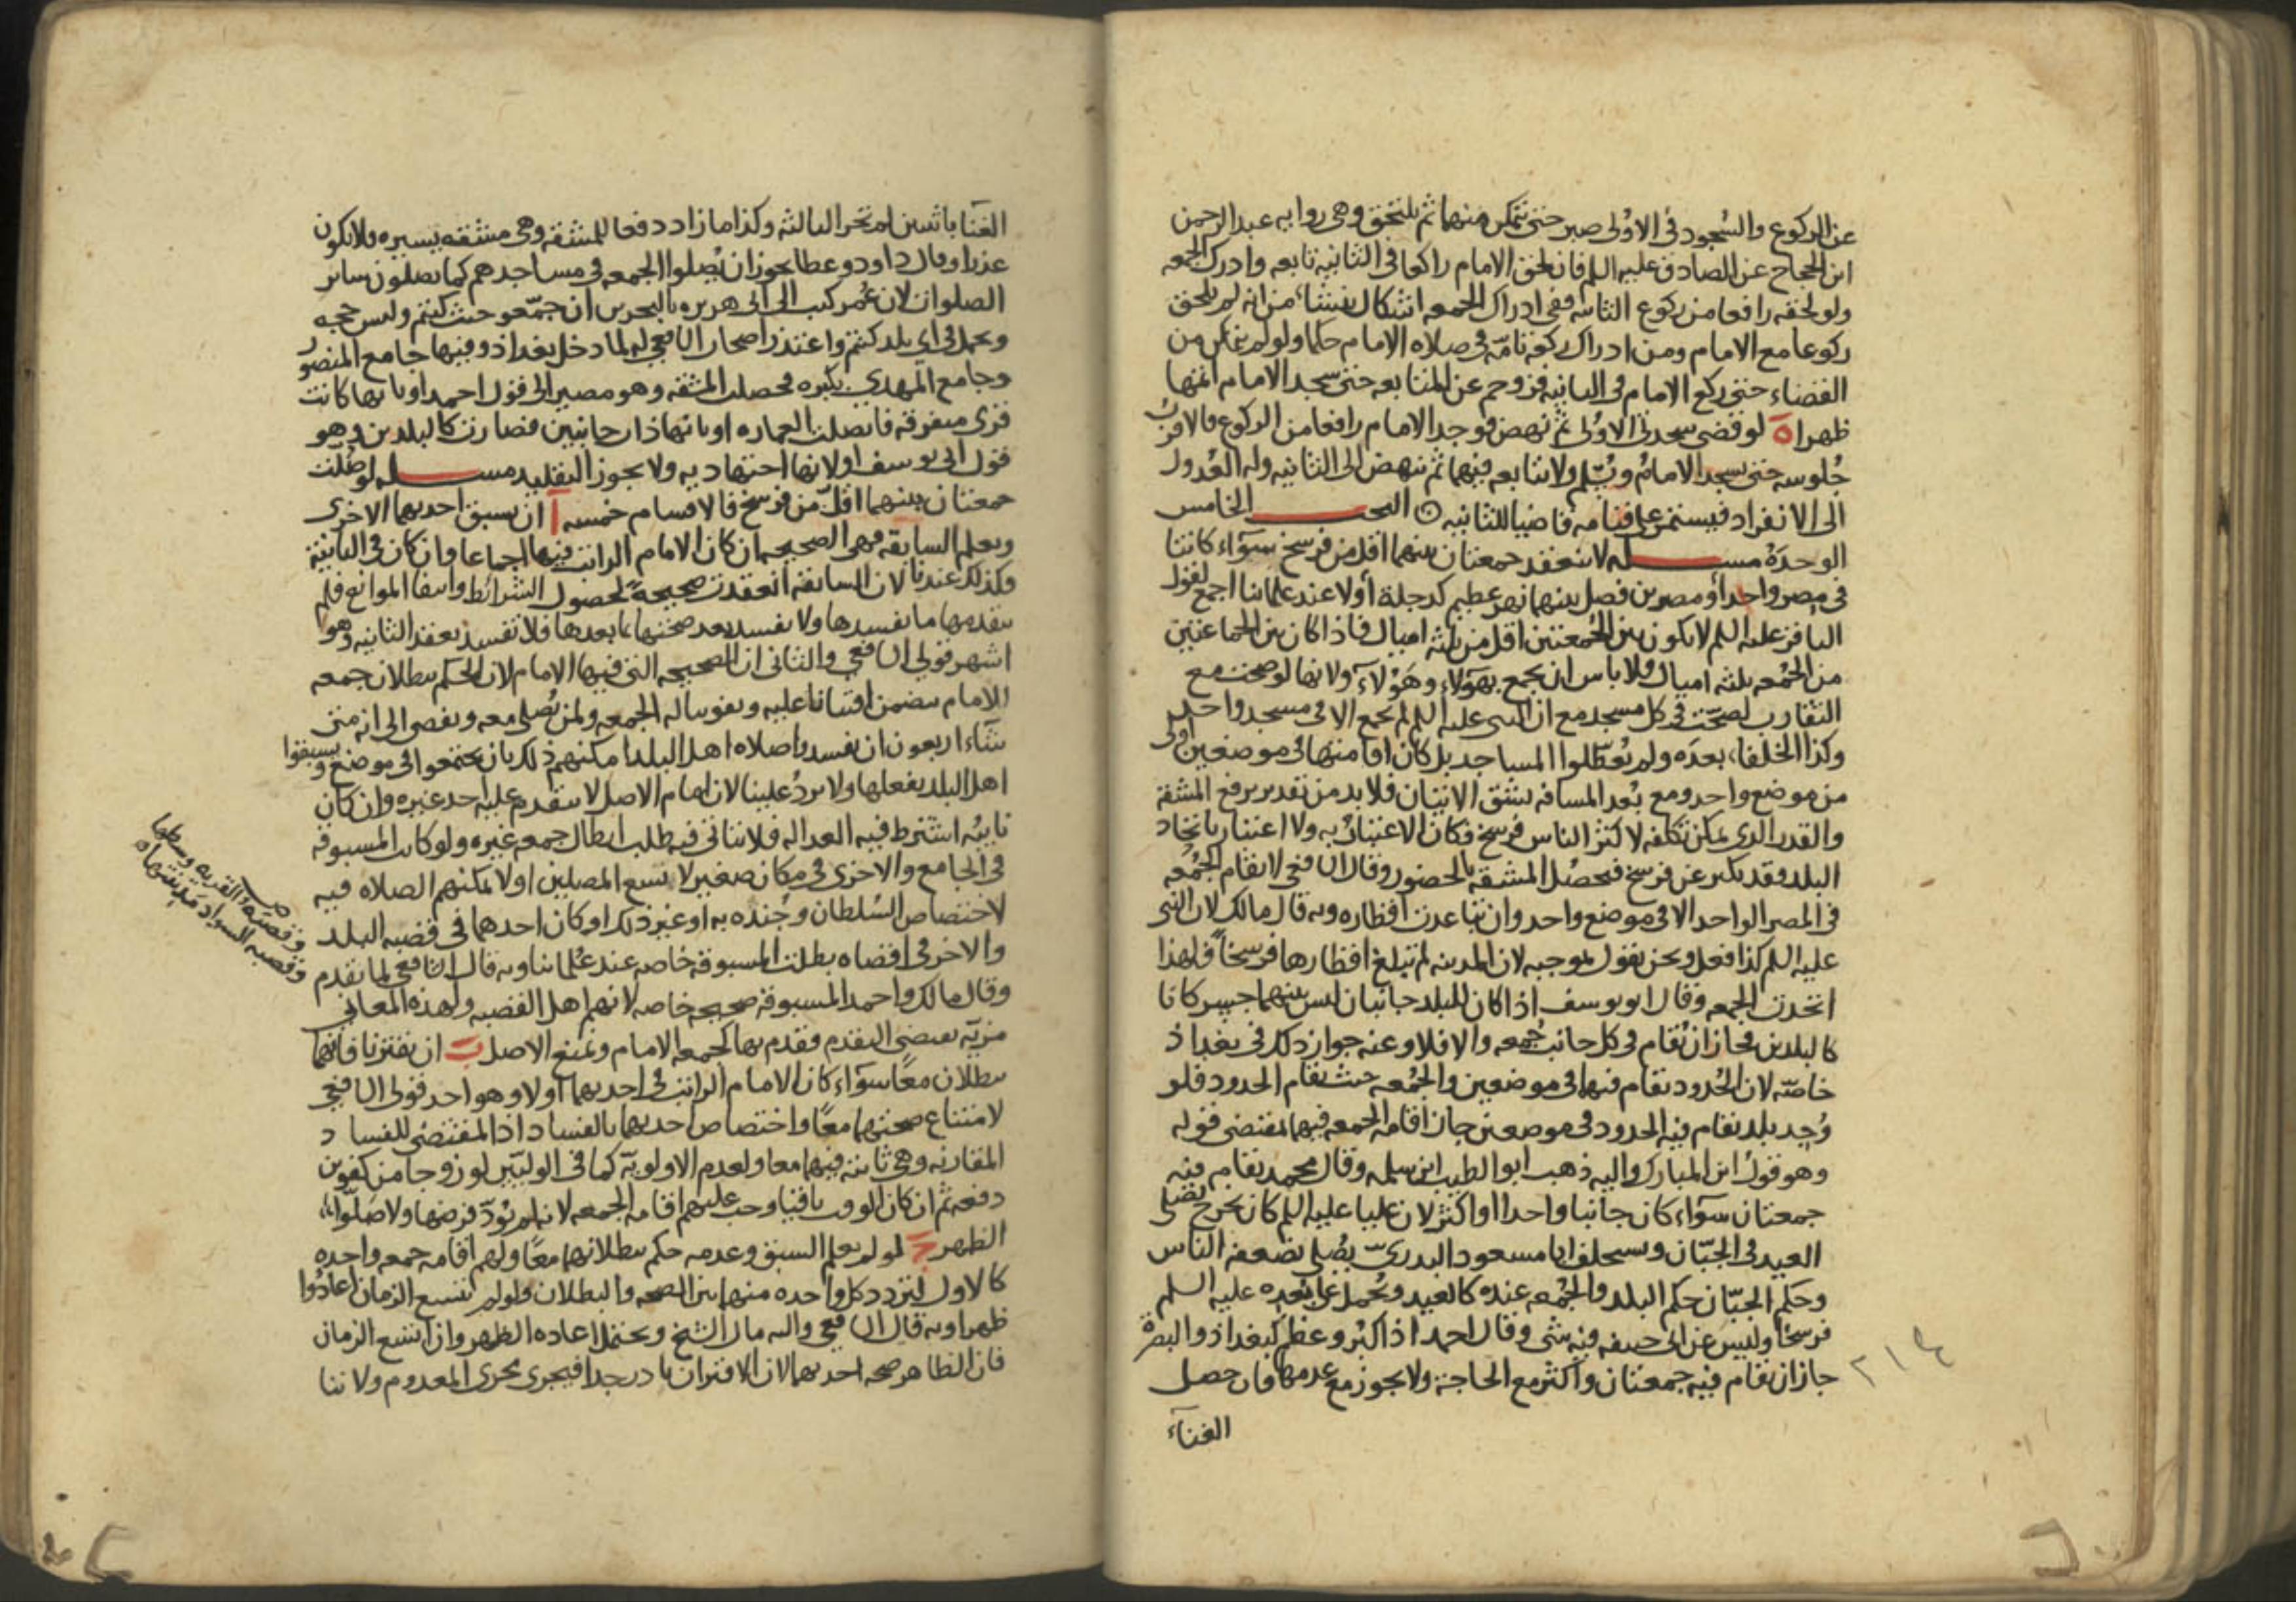 عن الركوع والسُجود في الاولى صبر حتى تمكن منهما ثم يلتحق وهي روايه عبد الرحمن
ابن الحجاج عن الصادق عليه السلم فان لحق الامام راكعا في الثانيه تابعه وادرك الجمعه
ولو لحقه رافعا من ركوع الثانيه ففي ادراك الجمعه اشكال ينشاء من انه لم يلحق
ركوعا مع الامام ومن ادراك ركعه تامّه في صلاه الامام حكما ولو لم يتمكن من
القضاء حتى ركع الامام في الثانيه فزوحم عن المتابعه حتى سجد الامام اتمها
ظهرا ه لو قضى سجدتي الاولى ثم نهض فوجد الامام رافعا من الركوع فالاقرب
جُلوسه حتى يسجد الامام ويُسلّم ولا يتابعه فيهما ثم ينهض الى الثانيه وله العُدول
الى الانفراد فيستمر على قيامه قاضيا للثانيه البحث الخامس
الوحدَهُ مسله لا تنعقد جمعتان بينهما اقل من فرسخ سوآء كانتا
في مصر واحد أو مصرين فصل بينهما نهر عظيم كدجلة أو لا عند علمائنا اجمع لقول
الباقر عليه السلم لا يكون بين الجُمعتين اقل من ثلثه اميال فاذا كان بين الجماعتين
من الجُمعه ثلثه اميال فلا باس ان يجمع بهؤلاء وهَؤلآء ولانها لو صحت مع
التقارب لصحّت في كل مسجد مع ان النبي عليه السلم لم يجمع الا في مسجد واحد
وكذا الخلفاء بعدَه ولم يُعطّلوا المساجد بل كان اقامتها في موضعين اولى
من موضع واحد ومع بُعد المسافه يشق الاتيان فلا بد من تقدير يرفع المشقة
والقدر الذى يمكن تكلفه لاكثر الناس فرسخ فكان الاعتبارُ به ولا اعتبار باتحاد
البلد وقد يكبر عن فرسخ فتحصُل المشقه بالحضور وقال الشافعي لا تقام الجُمعه
في المصر الواحد الا في موضع واحد وان تباعدت اقطاره وبه قال مالك لان النبي
عليه السلم كذا فعل ونحن نقول بموجبه لان المدينه لم تبلغ اقطارها فرسخاً فلهذا
اتحدت الجمعه وقال ابو يوسف اذا كان للبلد جانبان ليس بينهما جسر كانا
كالبلدين فجاز ان تُقام في كل جانب جُمعه والا فلا وعنه جواز ذلك في بغداذ
خاصّه لان الحُدود تقام فيها في موضعين والجُمعه حيث تقام الحدود فلو
وُجد بلد تقام فيه الحدود في موضعين جاز اقامه الجمعه فيهما بمقتضى قوله
وهو قول ابن المبارك واليه ذهب ابو الطيب ابن سلمه وقال محمد تقام فيه
جمعتان سوآء كان جانبا واحدا او اكثر لان عليا عليه السلم كان يخرج يُصلي
العيد في الجبّان ويستخلف ابا مسعود البدريّ يُصلي بضعفه الناس
وحكم الجبّان حكم البلد والجُمعه عنده كالعيد ويُحمل على بُعده عليه السلم
فرسخا وليس عن ابى حنيفه فيه شى وقال احمد اذا كبر وعظم كبغداذ والبصرة
جاز ان تقام فيه جمعتان واكثر مع الحاجة ولا يجوز مع عدمها فان حصل
الغنآء
٢١٤
الغنا باثنين لم تجز الثالثه وكذا ما زاد دفعا للمشقه وهي مشقه يسيره فلا تكون
عذرا وقال داود وعطا يجوز ان يُصلوا الجمعه في مساجدهم كما يصلون ساير
الصلوات لان عُمر كتب الى ابى هريره بالبحرين ان جمّعو حيث كنتم وليس حجه
ويحمل في اي بلد كنتم واعتذر اصحاب الشافعي له لما دخل بغداذ وفيها جامع المنصور
وجامع المهدي بكبره فحصلت المشقه وهو مصير الى قول احمد او بانها كانت
قرى متفرقه فاتصلت العماره او بانها ذات جانبين فصارت كالبلدين وهو
قول ابى يوسف او لانها اجتهاديه ولا يجوز التقليد مسله لو صُلّت
جمعتان بينهما اقلّ من فرسخ فالاقسام خمسه آ ان يسبق احديهما الاخرى
ويعلم السابقه فهي الصحيحه ان كان الامام الراتب فيها اجماعا وان كان في الثانية
وكذلك عندنا لان السابقه انعقدت صحيحةً لحصول الشرائط وانتفا الموانع فلم
يتقدمها ما يفسدها ولا يفسد بعد صحتها بما بعدها فلا تفسد بعقد الثانيه وهو
اشهر قولي الشافعي والثاني ان الصحيحه التي فيها الامام لان الحكم ببطلان جمعه
الامام يتضمن افتياتا عليه وتفويتا له الجمعه ولمن يُصلي معه ويفضى الى انه متى
شآء اربعون ان يفسدوا صلاه اهل البلد امكنهم ذلك بان يجتمعوا في موضع ويسبقوا
اهل البلد بفعلها ولا يردُ علينا لان امام الاصل لا يتقدم عليه احد غيره وان كان
نايبُه اشترط فيه العداله فلا يتاتى فيه طلب ابطال جمعه غيره ولو كانت المسبوقه
في الجامع والاخرى في مكان صغير لا يسع المصلين او لا يمكنهم الصلاه فيه
لاختصاص السُلطان وجُنده به او غير ذلك او كان احدهما في قصبه البلد
والاخر في اقصاه بطلت المسبوقه خاصه عند عُلمائنا وبه قال الشافعي لما تقدم
وقال مالك واحمد المسبوقه صحيحه خاصه لانهم اهل القصبه ولهذه المعاني
مزيّه تقتضي التقدم فقدم بها كجمعه الامام ونمنع الاصل ب ان يقترنا فانهما
يبطلان معًا سوآء كان الامام الراتب في احديهما او لا وهو احد قولى الشافعي
لامتناع صحتهما معًا واختصاص احديهما بالفساد اذ المقتضى للفساد
المقارنه وهي ثابته فيهما معا ولعدم الاولويّه كما في الوليّين لو زوجا من كفوين
دفعه ثم ان كان الوقت باقيا وجب عليهم اقامه الجمعه لانه لم يُؤدّ فرضها ولا صلّوا
الظهر ج لو لم يعلم السبق وعدمه حكم ببطلانهما معًا ولهم اقامه جمعه واحده
كالاول لتردد كل واحده منهما بين الصحه والبطلان ولو لم يتسع الزمان اعادُوا
ظهرا وبه قال الشافعي واليه مال الشيخ ويحتمل اعاده الظهر وان اتسع الزمان
فان الظاهر صحه احديهما لان الاقتران نادر جدا فيجرى مجرى المعدوم ولاننا
وقصبه القريه وسطها
وقصبه السواد مدينتها